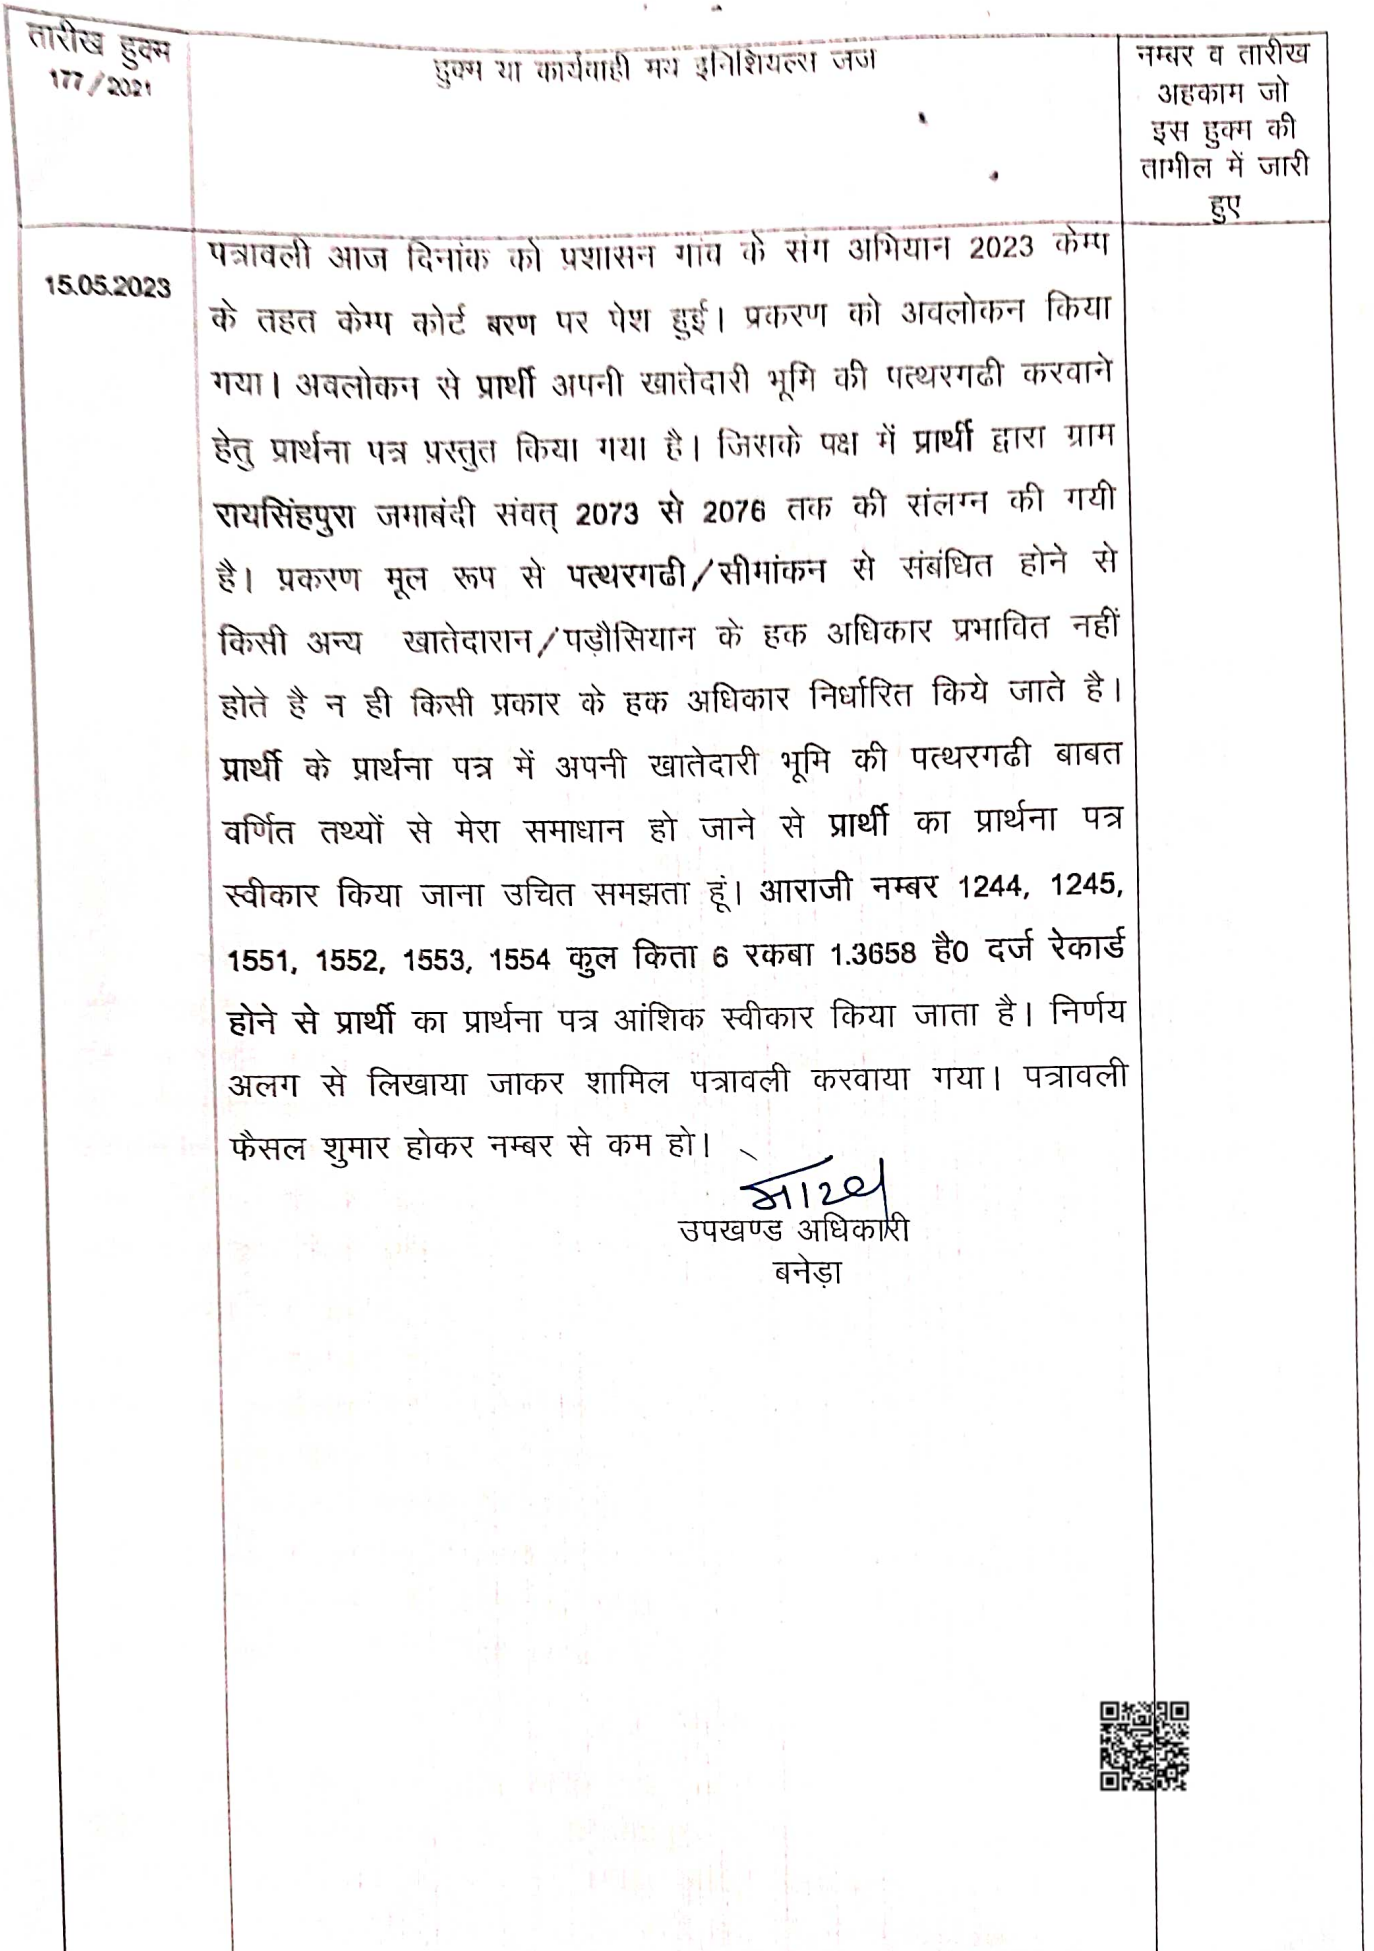 तारीख हुक्म
177/2021
हुक्म या कार्यवाही मय इनिशियल्स जज
नम्बर व तारीख
अहकाम जो
इस हुक्म की
तामील में जारी
हुए
15.05.2023
पत्रावली आज दिनांक को प्रशासन गांव के संग अभियान 2023 केम्प
के तहत केम्प कोर्ट बरण पर पेश हुई। प्रकरण को अवलोकन किया
गया। अवलोकन से प्रार्थी अपनी खातेदारी भूमि की पत्थरगढी करवाने
हेतु प्रार्थना पत्र प्रस्तुत किया गया है। जिसके पक्ष में प्रार्थी द्वारा ग्राम
रायसिंहपुरा जमाबंदी संवत् 2073 से 2076 तक की संलग्न की गयी
है। प्रकरण मूल रूप से पत्थरगढी/सीमांकन से संबंधित होने से
किसी अन्य खातेदारान/पड़ौसियान के हक अधिकार प्रभावित नहीं
होते है न ही किसी प्रकार के हक अधिकार निर्धारित किये जाते है।
प्रार्थी के प्रार्थना पत्र में अपनी खातेदारी भूमि की पत्थरगढी बाबत
वर्णित तथ्यों से मेरा समाधान हो जाने से प्रार्थी का प्रार्थना पत्र
स्वीकार किया जाना उचित समझता हूं। आराजी नम्बर 1244, 1245,
1551, 1552, 1553, 1554 कुल किता 6 रकबा 1.3658 है0 दर्ज रेकार्ड
होने से प्रार्थी का प्रार्थना पत्र आंशिक स्वीकार किया जाता है। निर्णय
अलग से लिखाया जाकर शामिल पत्रावली करवाया गया। पत्रावली
फैसल शुमार होकर नम्बर से कम हो।
उपखण्ड अधिकारी
बनेड़ा